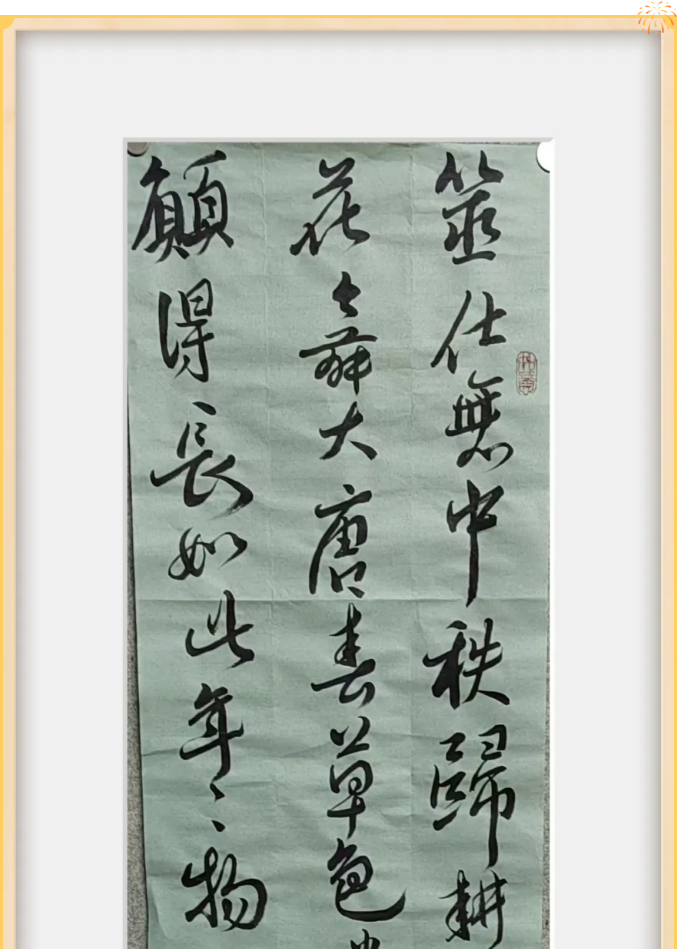 筮仕無中秩歸耕
花々舞大唐春草色
願得長如此年々物